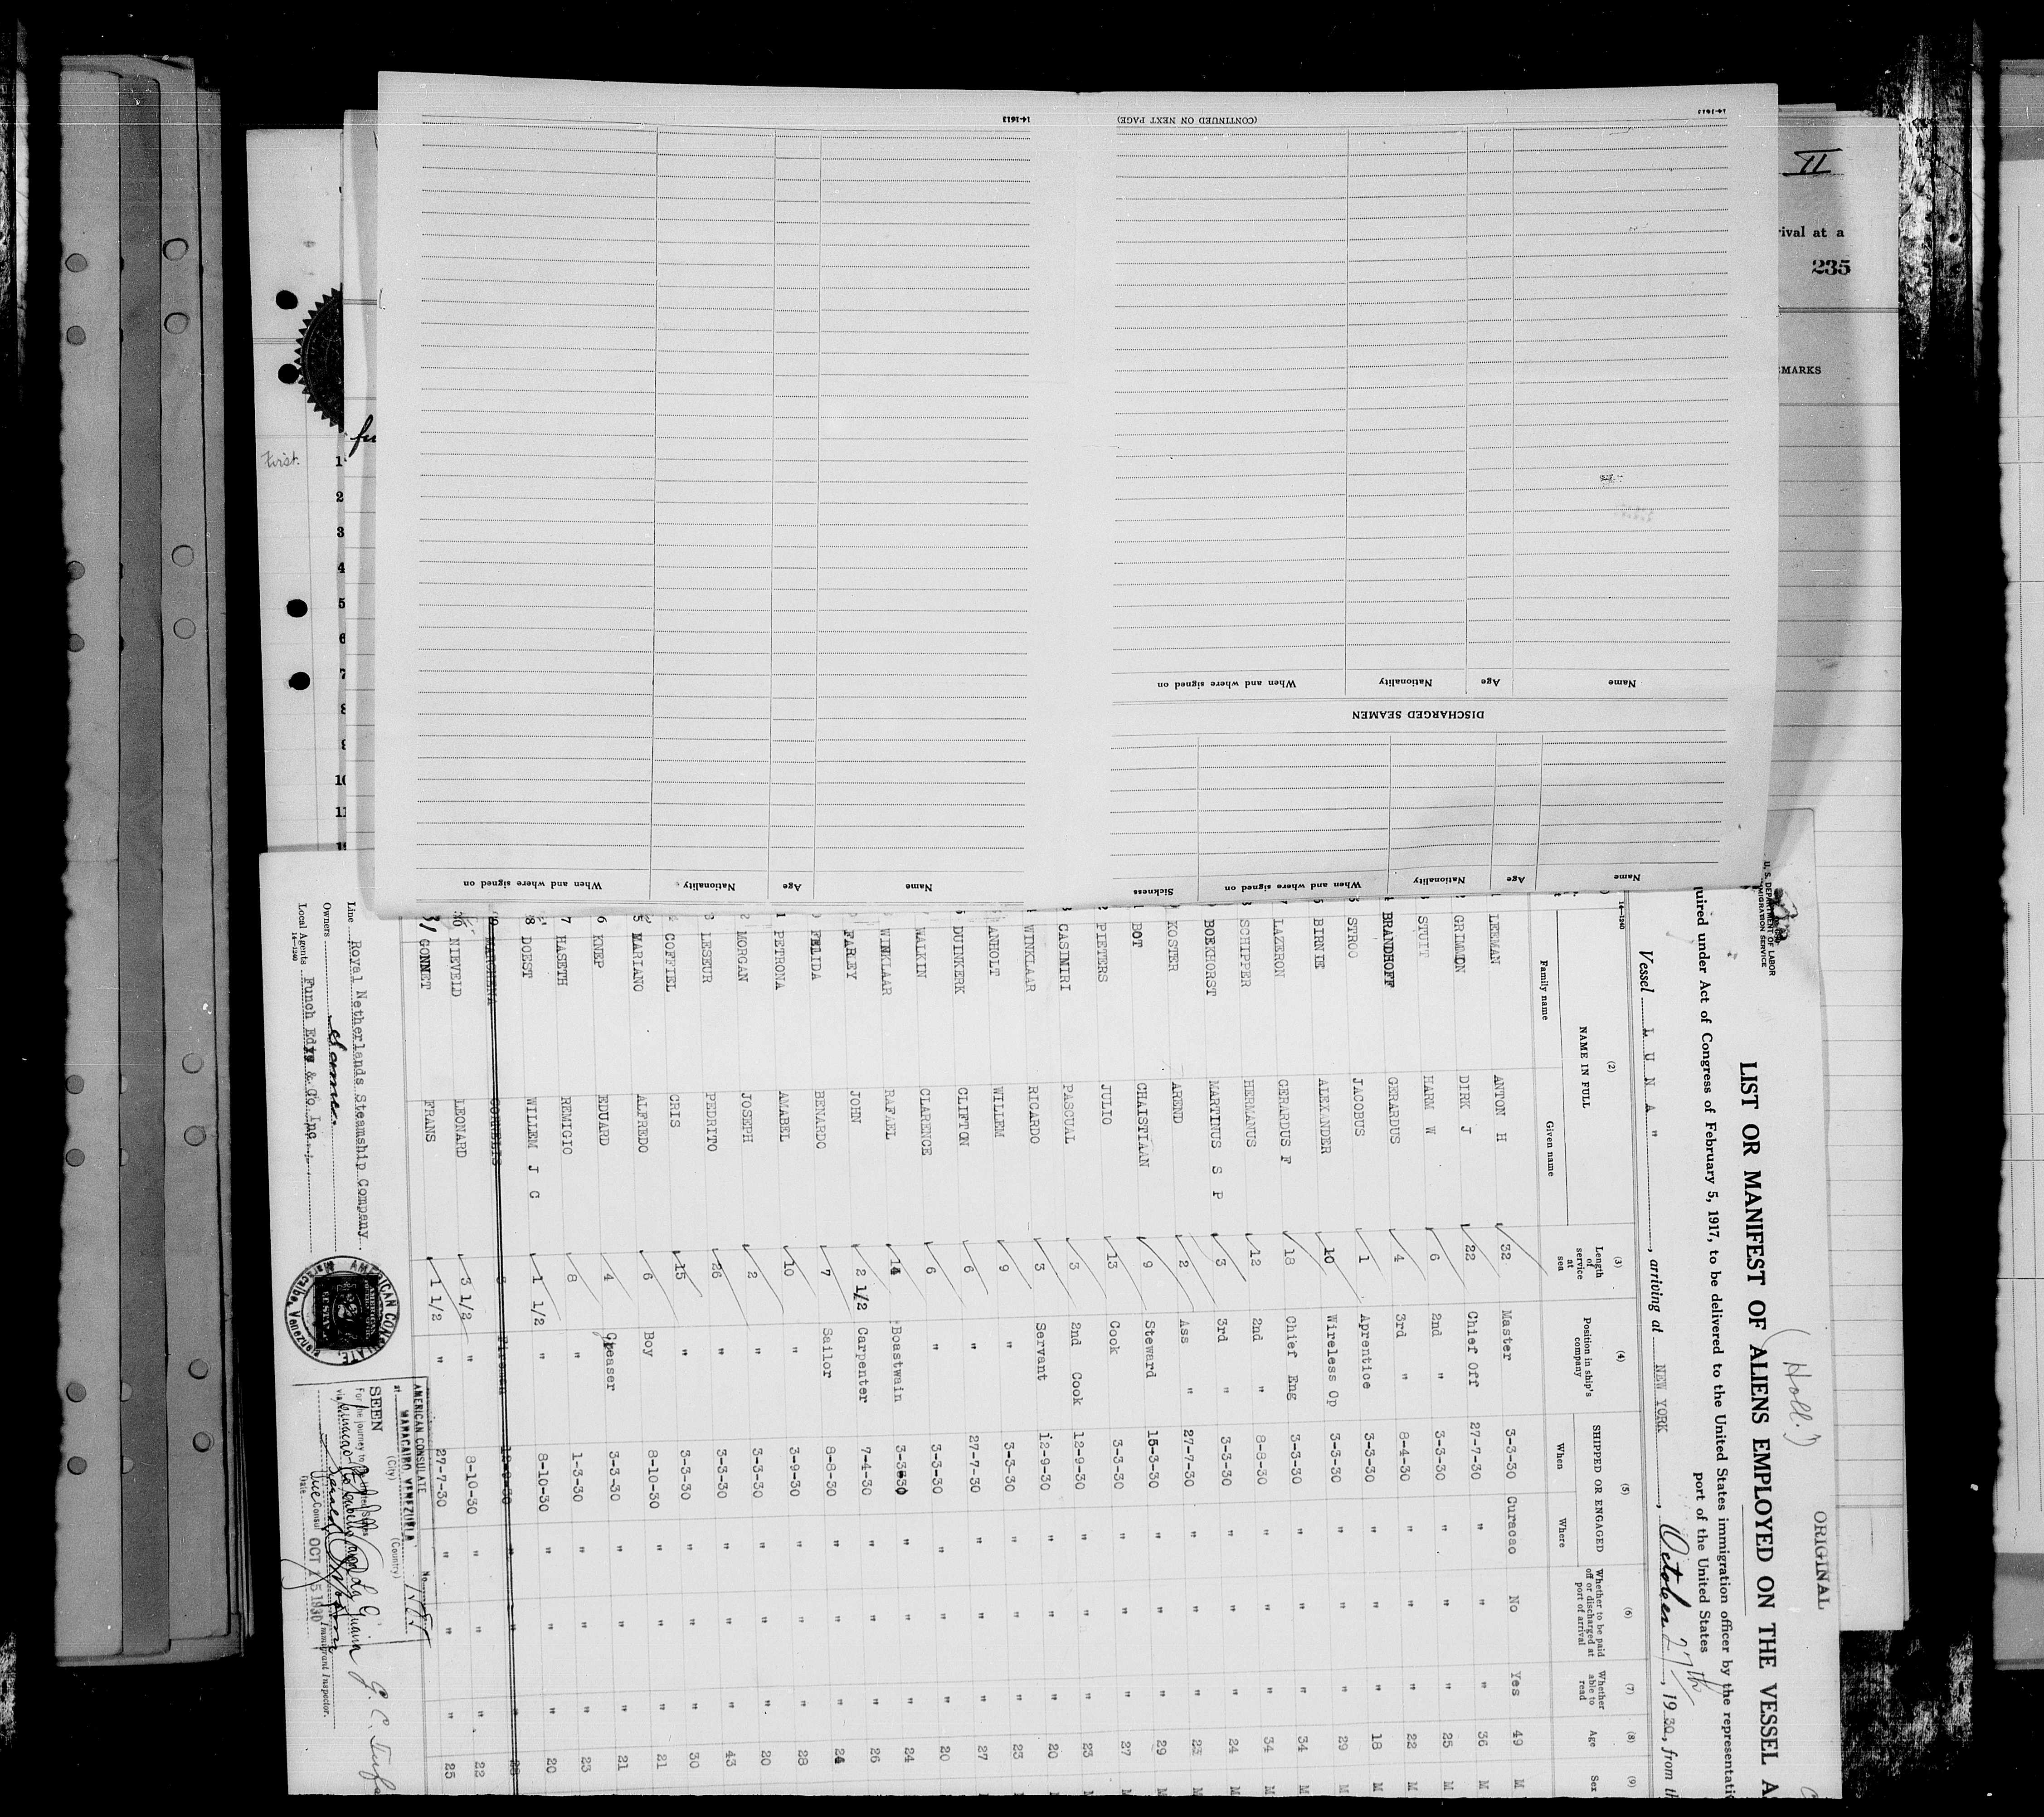 ORIGINAL
(Holl.)
U. S. DEPARTMENT OF LABOR
IMMIGRATION SERVICE
LIST OR MANIFEST OF ALIENS EMPLOYED ON THE VESSEL A
quired under Act of Congress of February 5, 1917, to be delivered to the United States immigration officer by the representati
port of the United States
Vessel L U N A ", arriving at NEW YORK, October 27th, 1930, from th
14-1240
(2) (3) (4) (5) (6) (7) (8) (9)
NAME IN FULL Length of service at sea Position in ship's company SHIPPED OR ENGAGED Whether to be paid off or discharged at port of arrival Whether able to read Age Sex
Family name Given name When Where
1 LEEMAN ANTON H 32 Master 3-3-30 Curacao No Yes 49 M
2 GRIMMON DIRK J 22 Chief Off 27-7-30 " " " 36 M
3 STUIT HARM W 6 2nd " 3-3-30 " " " 25 M
4 BRANDHOFF GERARDUS 4 3rd " 8-4-30 " " " 22 M
5 STROO JACOBUS 1 Aprentice 3-3-30 " " " 18 M
BIRNIE ALEXANDER 10 Wireless Op 3-3-30 " " " 29 M
7 LAZERON GERARDUS F 18 Chief Eng 3-3-30 " " " 34 M
8 SCHIPPER HERMANUS 12 2nd " 8-8-30 " " " 34 M
BOEKHORST MARTINUS S P 3 3rd " 3-3-30 " " " 24 M
KOSTER AREND 2 Ass " 27-7-30 " " " 23 M
1 BOT CHAISTIAAN 9 Steward 15-3-30 " " " 29 M
2 PIETERS JULIO 13 Cook 3-3-30 " " " 27
3 CASIMIRI PASCUAL 3 2nd Cook 12-9-30 " " " 23
WINKLAAR RICARDO 3 Servant 12-9-30 " " " 20
ANHOLT WILLEM 9 " 3-3-30 " " " 23
DUINKERK CLIFTON 6 " 27-7-30 " " " 27
WALKIN CLARENCE 6 " 3-3-30 " " " 20
WINKLAAR RAFAEL 14 Boastwain 3-3-30 " " " 24
FARLEY JOHN 2 1/2 Carpenter 7-4-30 " " " 26
FELIDA BENARDO 7 Sailor 8-8-30 " " " 24
1 PETRONA AMABEL 10 " 3-9-30 " " " 28
2 MORGAN JOSEPH 2 " 3-3-30 " " " 20
3 LESEUR PEDRITO 26 " 3-3-30 " " " 43
COFFIEL CRIS 15 " 3-3-30 " " " 30
5 MARIANO ALFREDO 6 Boy 8-10-30 " " " 21
6 KNEP EDUARD 4 Greaser 3-3-30 " " " 21
7 HASETH REMIGIO 8 " 1-3-30 " " " 23
8 DOEST WILLEM J C 1 1/2 " 8-10-30 " " " 20
MARCHENA CORNELIS 3 Fireman
30 NIEVELD LEONARD 3 1/2 " 8-10-30 " " " 22
31 GONNET FRANS 1 1/2 " 27-7-30 " " " 25
Line Royal Netherlands Steamship Company.
Owners Same.
Local Agents Funch Edye & Co Inc.
14-1240
AMERICAN CONSULATE
Maracaibo, Venezuela
AMERICAN CONSULATE
at MARACAIBO VENEZUELA
(City) (Country)
No.
SEEN
For the journey to the United States
via Curacao
Vice Consul
OCT 15 1930
Date
Immigrant Inspector.
II
rival at a
235
EMARKS
First.
fu
1
2
3
4
5
6
7
8
9
10
11
14-1613
(CONTINUED ON NEXT PAGE)
14-1613
Name Age Nationality When and where signed on
DISCHARGED SEAMEN
Name Age Nationality When and where signed on Sickness
Name Age Nationality When and where signed on